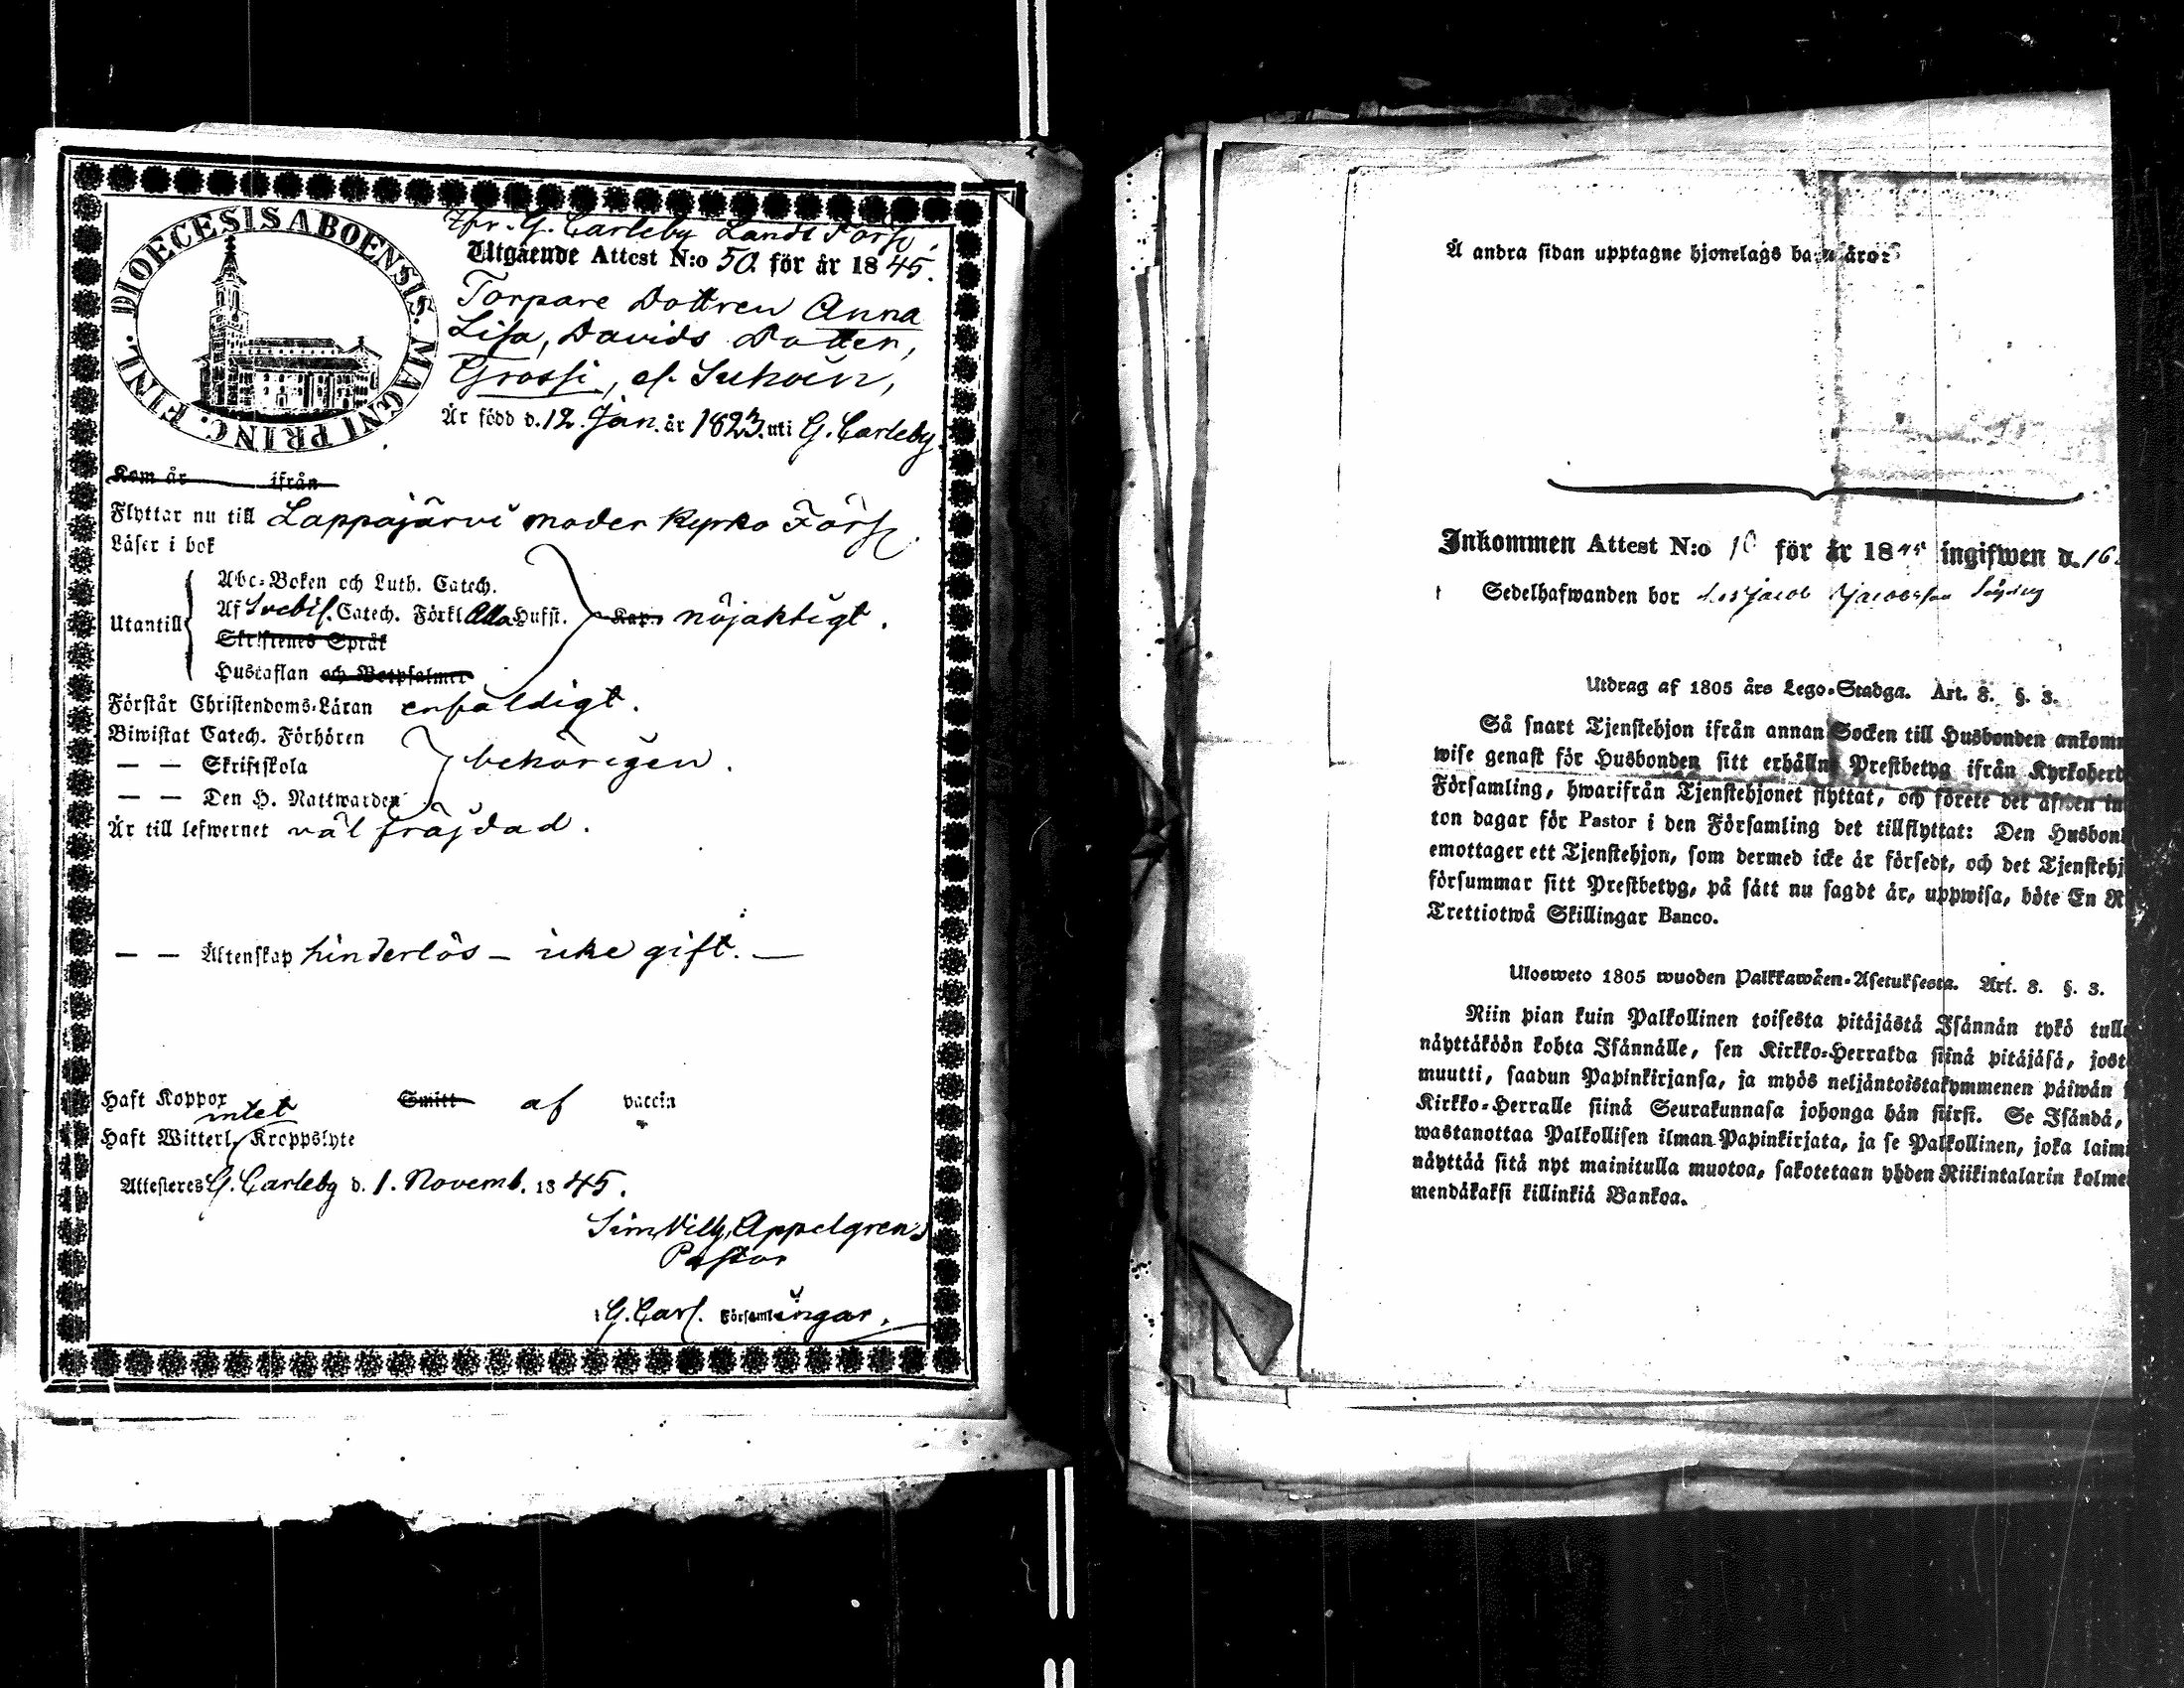 DIOECESIS ABOENSIS. MAGNI PRINC. FINL.
Utgående Attest N:o 50. för år 1845.
G. Carleby Lands Förs.
Torpare Dottren Anna
Lisa, Davids Dotter,
Grossi, af
Är född d. 12. Jan. år 1823. uti G. Carleby.
Kom år ifrån
Flyttar nu till Lappajärvi moder Kyrko Förs.
Läser i bok
Utantill
Abc-Boken och Luth. Catech.
Af Svebil. Catech. Förkl Alla Husst.
Skriftenes Språk
Hustaflan och Botpsalmer
Kan nöjaktigt.
Förstår Christendoms-Läran enfaldigt.
Biwistat Catech. Förhören
— — Skriftskola
— — Den H. Nattwarden
behörigen.
Är till lefwernet väl fräjdad.
— — Äktenskap hinderlös – icke gift. —
Haft Koppor Smitt af vaccin
intet
Haft Witterl. Kroppslyte
Attesteres G. Carleby d. 1. Novemb. 1845.
Sim. Wilh. Appelgren
Pastor
i G. Carl. Församlingar.
Å andra sidan upptagne hjonelags barn äro:
Inkommen Attest N:o 10 för år 1845 ingifwen d. 16
Sedelhafwanden bor
Utdrag af 1805 års Lego-Stadga. Art. 8. §. 3.
Så snart Tjenstehjon ifrån annan Socken till Husbonden ankomm
wise genast för Husbonden sitt erhållna Prestbetyg ifrån Kyrkoherd
Församling, hwarifrån Tjenstehjonet flyttat, och förete det äfwen in
ton dagar för Pastor i den Församling det tillflyttat: Den Husbon
emottager ett Tjenstehjon, som dermed icke är försedt, och det Tjenstehj
försummar sitt Prestbetyg, på sätt nu sagdt är, uppwisa, böte En R
Trettiotwå Skillingar Banco.
Ulosweto 1805 wuoden Palkkawäen-Asetuksesta. Art. 8. §. 3.
Niin pian kuin Palkollinen toisesta pitäjästä Isännän tykö tull
näyttäköön kohta Isännälle, sen Kirkko-Herralda siinä pitäjäsä, jost
muutti, saadun Papinkirjansa, ja myös neljäntoistakymmenen päiwän
Kirkko-Herralle siinä Seurakunnasa johonga hän siirsi. Se Isändä,
wastanottaa Palkollisen ilman Papinkirjata, ja se Palkollinen, joka laimi
näyttää sitä nyt mainitulla muotoa, sakotetaan yhden Riikintalarin kolme
mendäkaksi killinkiä Bankoa.